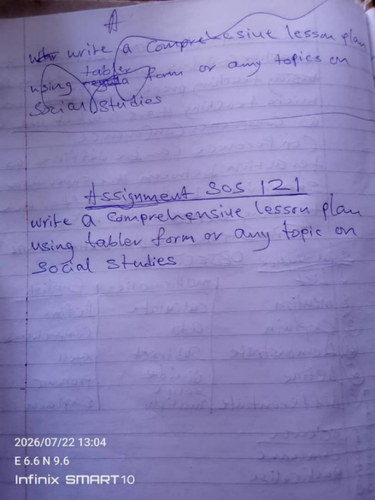 A
write a Comprehensive lesson plan
tabler
using form or any topics on
Social Studies
Assignment SOS 121
write a Comprehensive lesson plan
using tabler form or any topic on
Social Studies
2026/07/22 13:04
E 6.6 N 9.6
Infinix SMART10